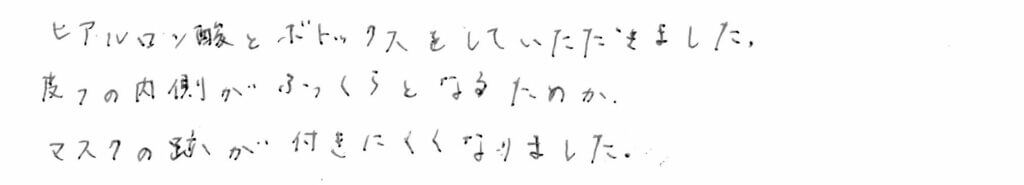 ヒアルロン酸とボトックスをしていただきました。
皮フの内側がふっくらとなるためか、
マスクの跡が付きにくくなりました。